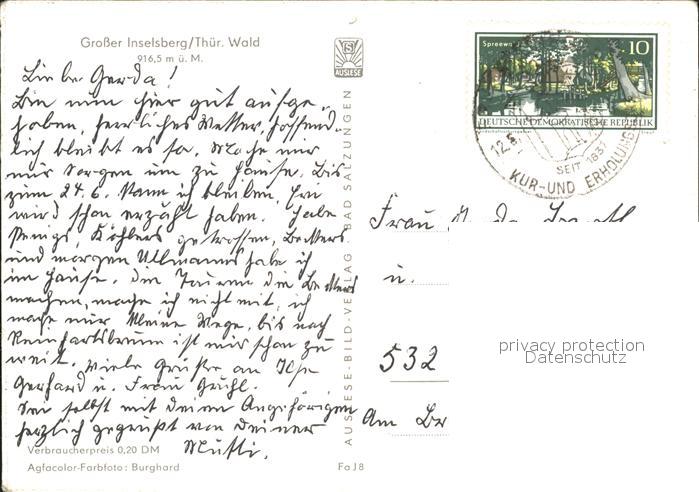 Großer Inselsberg/Thür. Wald
916,5 m ü. M.
Liebe Gerda!
Bin nun hier gut aufge-
hoben, herrliches Wetter, hoffend-
lich bleibt es so. Mache mir
nur Sorgen um zu Hause. Bis
zum 24.6. kann ich bleiben,
wird schon erzählt haben. Habe
Köhlers getroffen, Beckers
und morgen Ullmanns habe ich
im Hause. Die Touren die Beckers
machen, mache ich nicht mit, ich
mache nur kleine Wege, bis nach
Reinhardsbrunn ist mir schon zu
weit. Viele Grüße an Ilse
Gerhard u. Frau
Sei selbst mit deinen Angehörigen
herzlich gegrüßt von deiner
Mutti.
Verbraucherpreis 0,20 DM
Agfacolor-Farbfoto: Burghard
Fa J 8
AUSLESE
AUSLESE-BILD-VERLAG · BAD SALZUNGEN
Spreewald
10
DEUTSCHE DEMOKRATISCHE REPUBLIK
12.6.
SEIT 1837
KUR- UND ERHOLUNGS
Frau
u.
532
Am
privacy protection
Datenschutz